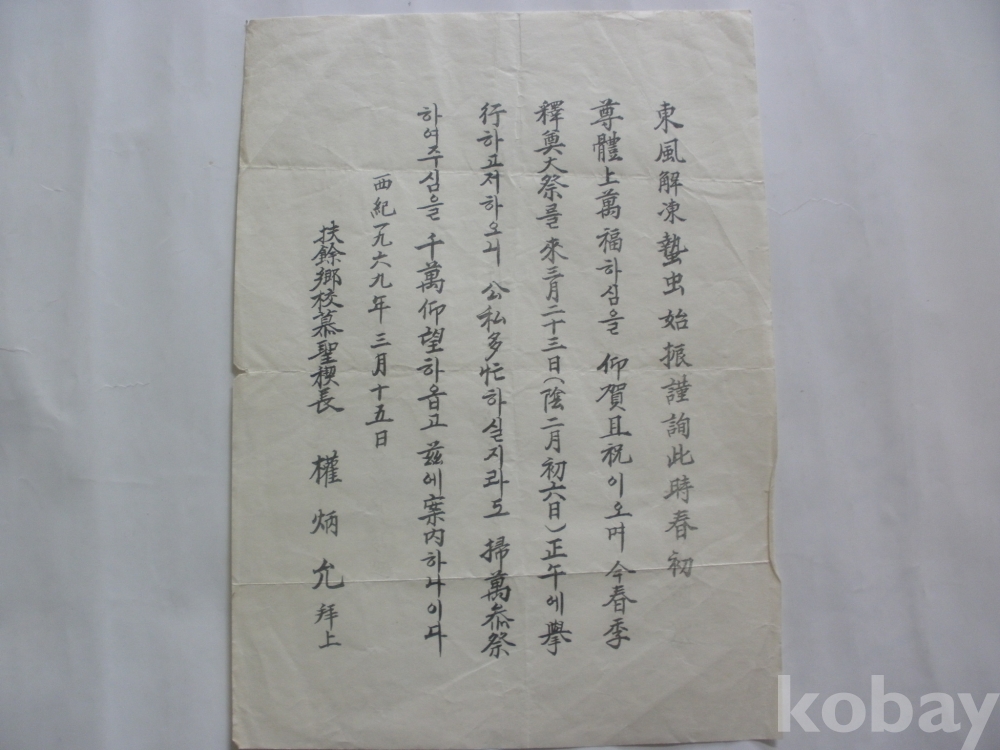 東風解凍蟄虫始振謹詢此時春初
尊體上萬福하심을 仰賀且祝이오며 今春季
釋奠大祭를 來三月二十三日(陰二月初六日)正午에擧
行하고저하오니 公私多忙하실지라도 掃萬忝祭
하여주심을 千萬仰望하옵고 玆에案內하나이다
西紀一九六九年 三月十五日
扶餘鄕校慕聖稧長 權炳允 拜上
kobay